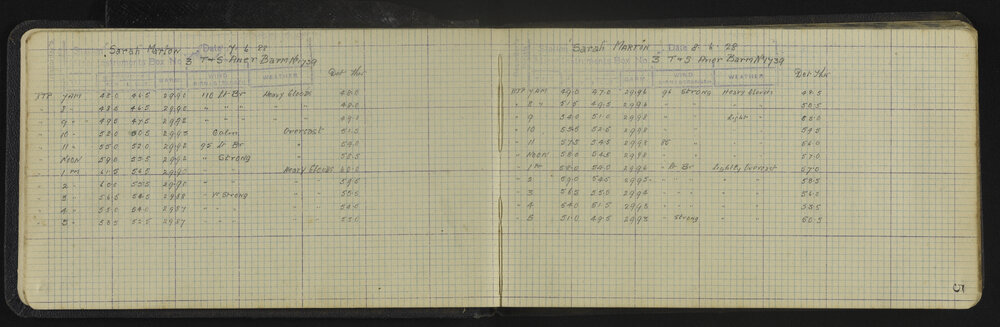 "Sarah" Marton Date 7.6.28
Instruments Box No 3 T+S Aner Barm No 1739
BARM WIND WEATHER Det Thr
STP 7AM 48.0 46.5 29.90 110 Lt Br Heavy Clouds 48.0
" 8 " 48.5 46.5 29.90 " " " " 48.0
" 9 " 49.5 47.5 29.92 " " " " 49.0
" 10 " 52.0 50.5 29.93 Calm Overcast 51.5
" 11 " 55.0 52.0 29.92 95 Lt Br " 54.0
" NOON 59.0 55.5 29.92 " Strong " 58.5
" 1 PM 61.5 56.5 Heavy Clouds 60.0
" 2 " 60.5 55.5 29.90 " " " 59.5
" 3 " 56.5 54.0 29.88 " V Strong " " 55.5
" 4 " 55.0 54.0 29.87 " " " " 54.0
" 5 " 53.5 52.5 29.87 " " " " 53.0
"Sarah" Marton Date 8.6.28
Instruments Box No 3 T+S Aner Barm No 1739
BARM WIND WEATHER Det Thr
STP 7AM 49.0 47.0 29.96 96 Strong Heavy Clouds 48.5
" 8 " 51.5 49.5 29.96 " " " " 50.5
" 9 54.0 51.0 29.98 " " Light " 55.0
" 10 55.5 52.5 29.98 " " " " 54.5
" 11 57.5 54.5 29.98 85 " " " 56.0
" NOON 58.0 54.5 29.98 " " " " 57.0
" 1 PM 54.0 29.96 " Lt Br Lightly Overcast 57.0
" 2 59.0 54.5 29.95 " " " " 58.5
" 3 56.5 53.0 29.94 " " " " 56.0
" 4 54.0 51.5 29.93 " " " " 53.5
" 5 51.0 49.5 29.93 " Strong " " 50.5
5